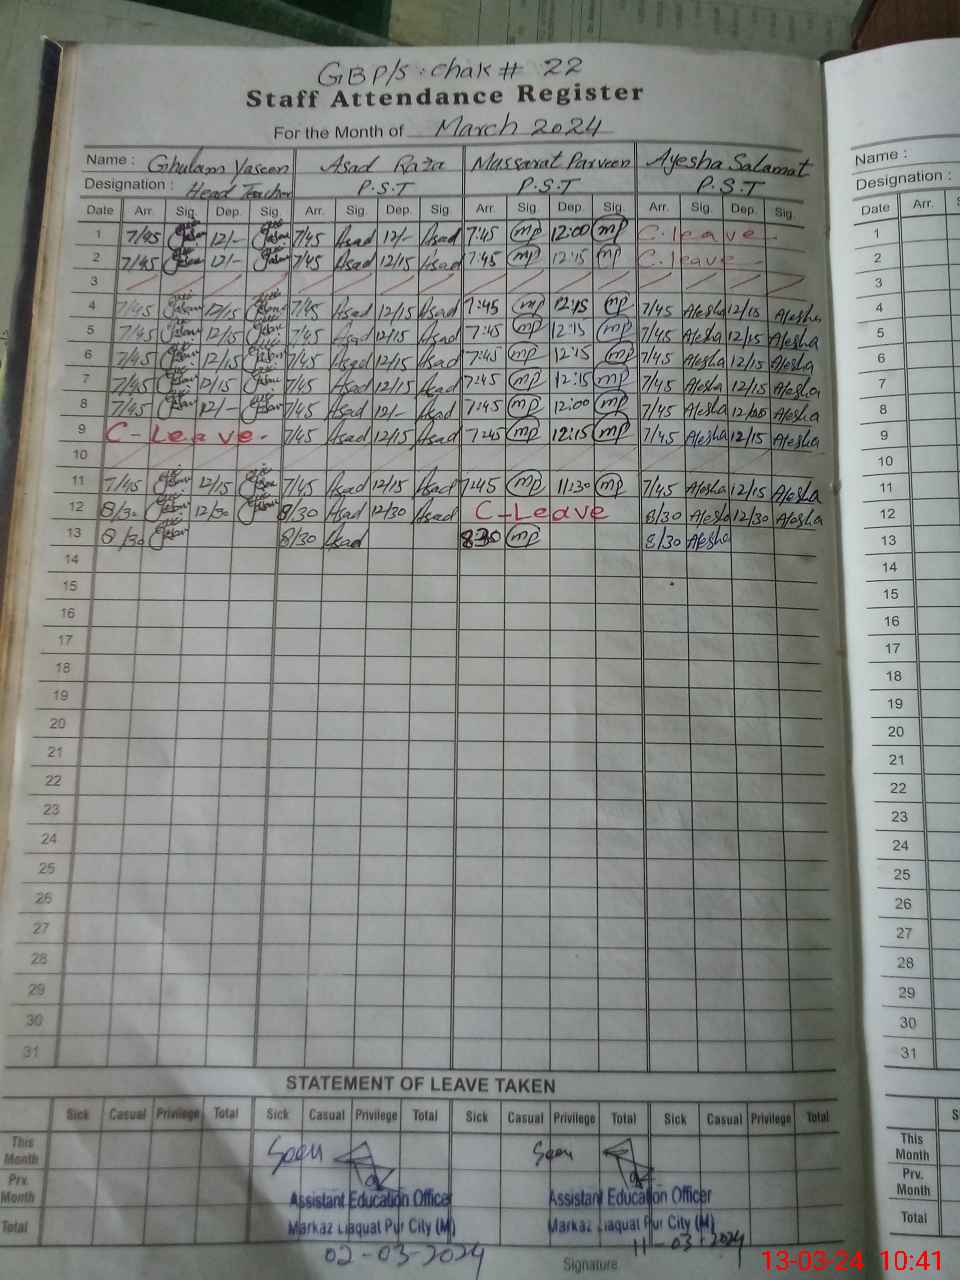 GBP/S : chak # 22
Staff Attendance Register
For the Month of March 2024
Name : Ghulam Yaseen Asad Raza Massarat Parveen Ayesha Salamat Name :
Designation : Head Teacher P.S.T P.S.T P.S.T Designation :
Date Arr. Sig. Dep. Sig. Arr. Sig. Dep. Sig. Arr. Sig. Dep. Sig. Arr. Sig. Dep. Sig. Date Arr.
1 7/45 12/- 7/45 Asad 12/- Asad 7:45 mp 12:00 mp C.leave 1
2 7/45 12/- 7/45 Asad 12/15 Asad 7:45 mp 12:15 mp C.leave 2
3 3
4 7/45 12/15 7/45 Asad 12/15 Asad 7:45 mp 12:15 mp 7/45 Aiesha 12/15 Aiesha 4
5 7/45 12/15 7/45 Asad 12/15 Asad 7:45 mp 12:15 mp 7/45 Aiesha 12/15 Aiesha 5
6 7/45 12/15 7/45 Asad 12/15 Asad 7:45 mp 12:15 mp 7/45 Aiesha 12/15 Aiesha 6
7 7/45 12/15 7/45 Asad 12/15 Asad 7:45 mp 12:15 mp 7/45 Aiesha 12/15 Aiesha 7
8 7/45 12/- 7/45 Asad 12/- Asad 7:45 mp 12:00 mp 7/45 Aiesha Aiesha 8
9 C-Leave. 7/45 Asad 12/15 Asad 7:45 mp 12:15 mp 7/45 Aiesha 12/15 Aiesha 9
10 10
11 7/45 12/15 7/45 Asad 12/15 Asad 7:45 mp 11:30 mp 7/45 Aiesha 12/15 Aiesha 11
12 8/30 12/30 8/30 Asad 12/30 Asad C-Leave 8/30 Aiesha 12/30 Aiesha 12
13 8/30 8/30 Asad 8:30 mp 8/30 Aiesha 13
14 14
15 15
16 16
17 17
18 18
19 19
20 20
21 21
22 22
23 23
24 24
25 25
26 26
27 27
28 28
29 29
30 30
31 31
STATEMENT OF LEAVE TAKEN
Sick Casual Privilege Total Sick Casual Privilege Total Sick Casual Privilege Total Sick Casual Privilege Total
This Month Seen Seen This Month
Prv. Month Assistant Education Officer Assistant Education Officer Prv. Month
Total Markaz Liaquat Pur City (M) Markaz Liaquat Pur City (M) Total
02-03-2024 11-03-2024
Signature
13-03-24 10:41